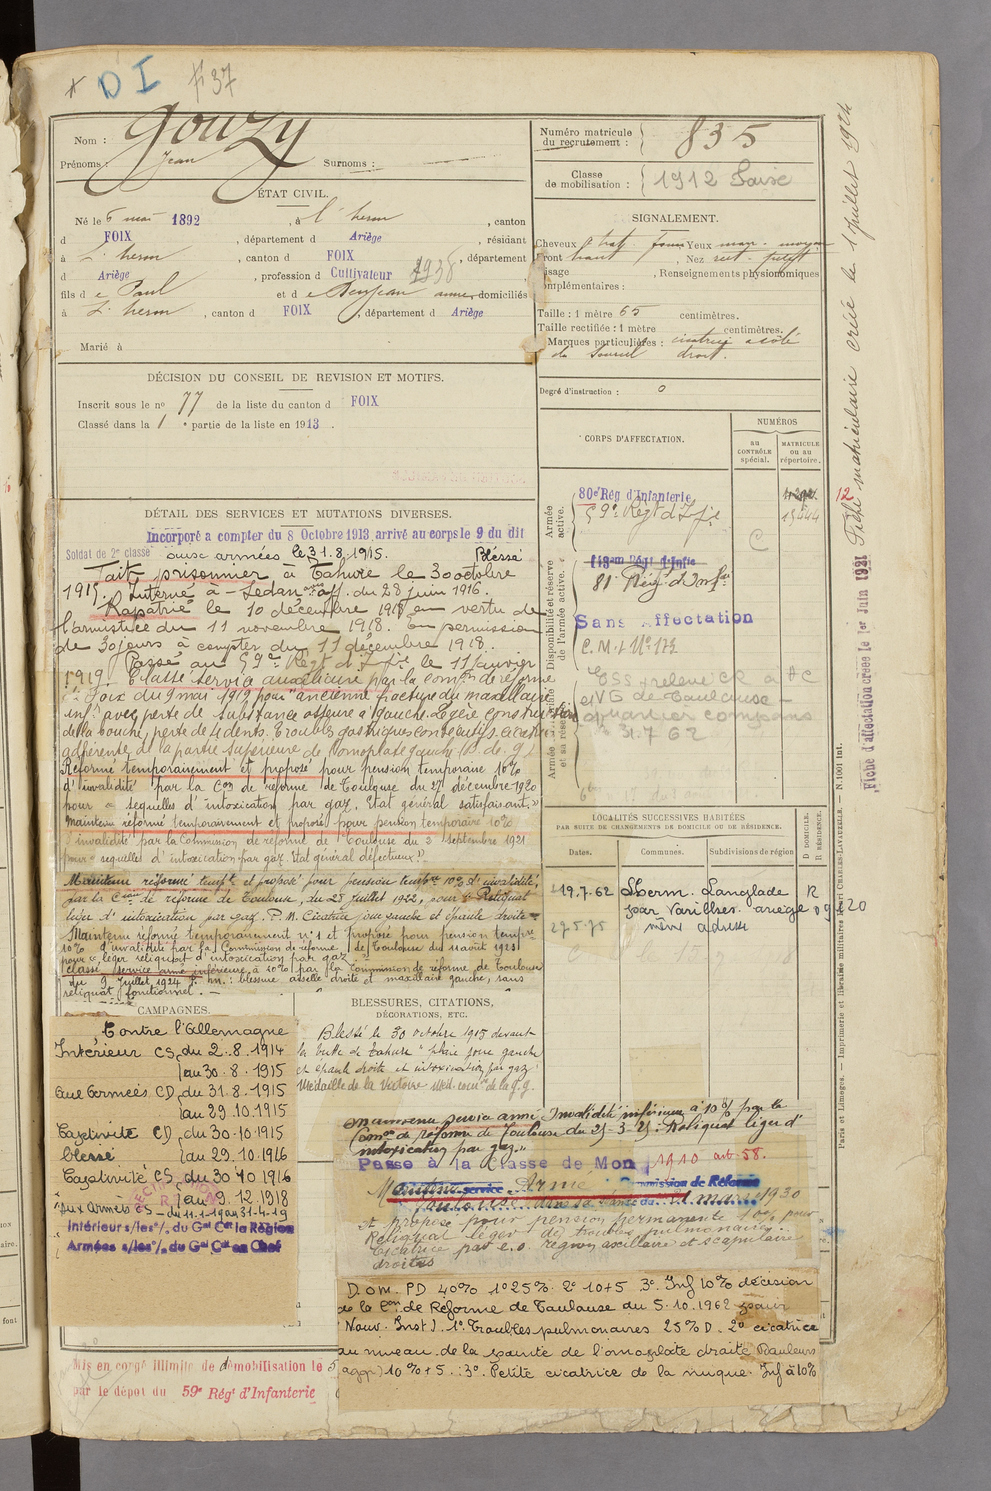 D I # 37
Nom : Gouzy
Prénoms : Jean Surnoms :
ÉTAT CIVIL.
Né le 6 mai 1892, à l'herm, canton
d FOIX, département d Ariège, résidant
à L'herm, canton d FOIX, département
d Ariège, profession d Cultivateur 1938
fils d e Paul et d e domiciliés
à L'herm, canton d FOIX, département d Ariège
Marié à
DÉCISION DU CONSEIL DE REVISION ET MOTIFS.
Inscrit sous le no 77 de la liste du canton d FOIX
Classé dans la 1e partie de la liste en 1913.
Numéro matricule du recrutement : 835
Classe de mobilisation : 1912
SIGNALEMENT.
Cheveux Yeux
Front haut, Nez rect.
Visage, Renseignements physionomiques
complémentaires :
Taille : 1 mètre 65 centimètres.
Taille rectifiée : 1 mètre centimètres.
Marques particulières : cicatrice à côté
du sourcil droit.
Degré d'instruction : 0
DÉTAIL DES SERVICES ET MUTATIONS DIVERSES.
Incorporé a compter du 8 Octobre 1913 arrivé au corps le 9 du dit
Soldat de 2e classe aux armées le 31.8.1915. Blessé
Fait prisonnier à Tahure le 30 octobre
1915. Interné à Sedan aff. du 28 juin 1916.
Rapatrié le 10 décembre 1918 en vertu de
l'armistice du 11 novembre 1918. En permission
de 30 jours à compter du 11 décembre 1918.
Passé au 59e Régt d'Ifie le 11 janvier
1919. Classé service auxiliaire par la comon de réforme
de Foix du 9 mai 1919 pour "ancienne fracture du maxillaire
inf. avec perte de substance osseuse à gauche. Légère constriction
de la bouche, perte de 4 dents. Troubles gastriques consécutifs. cicatrice
adhérente de la partie supérieure de l'omoplate gauche (B. de g)
Réformé temporairement et proposé pour pension temporaire 10%
d'invalidité par la Con de réforme de Toulouse du 27 décembre 1920
pour « sequelles d'intoxication par gaz. Etat général satisfaisant. »
Maintenu réformé temporairement et proposé pour pension temporaire 10%
d'invalidité par la Commission de réforme de Toulouse du 2 septembre 1921
pour « sequelles d'intoxication par gaz. Etat général défectueux »
Maintenu réformé tempt et proposé pour pension tempre 10% d'invalidité,
par la Con de réforme de Toulouse, du 25 juillet 1922, pour « Reliquat
léger d'intoxication par gaz. P. M. Cicatrice joue gauche et épaule droite »
Maintenu réformé temporairement no 1 et proposé pour pension tempre
10% d'invalidité par la Commission de réforme de Toulouse du 11 août 1923
pour « léger reliquat d'intoxication par gaz »
Classé service armé inférieure à 10% par la Commission de réforme de Toulouse
du 9 Juillet 1924 P. m. : blessure aisselle droite et maxillaire gauche, sans
reliquat fonctionnel.
CORPS D'AFFECTATION.
NUMÉROS
au CONTRÔLE spécial.
MATRICULE ou au répertoire.
Armée active.
80e Rég d'Infanterie
59e Régt d'Ifie 15444
C
Disponibilité et réserve de l'armée active.
81 Rég d'Infie
Sans Affectation
C. M. I No 173
CSS relevé CR à AC
et VG de Toulouse -
quartier compans
31.7.62
LOCALITÉS SUCCESSIVES HABITÉES
PAR SUITE DE CHANGEMENTS DE DOMICILE OU DE RÉSIDENCE.
D DOMICILE. R RÉSIDENCE.
Dates. Communes. Subdivisions de région
19.7.62 Lherm. Langlade R
par Varilhes. ariège 09 120
27.5.75 même adresse
CAMPAGNES.
Contre l'Allemagne
Intérieur CS du 2.8.1914
au 30.8.1915
Aux Armées CD du 31.8.1915
au 29.10.1915
Captivité CD du 30.10.1915
blessé au 29.10.1916
Captivité CS du 30.10.1916
au 9.12.1918
Aux Armées CS - du 11-1-19 au 31-4-19
Intérieur s/les o/s du Gal Ct la Région
Armées s/les o/s du Gal Ct en Chef
Mis en congé illimité de démobilisation le 5
par le dépot du 59e Régt d'Infanterie
BLESSURES, CITATIONS,
DÉCORATIONS, ETC.
Blessé le 30 octobre 1915 devant
la butte de Tahure "plaie joue gauche
et épaule droite et intoxication par gaz
Médaille de la Victoire Méd. comve de la g.g.
Maintenu service armé. Invalidité inférieure à 10% par la
Comon de réforme de Toulouse du 25-3-25. "Reliquat léger d'
intoxication par gaz"
Passé à la Classe de Mon 1910 art 58.
Maintenu service Armé Commission de Réforme
Toulouse dans sa séance du 21 mars 1930
et proposé pour pension permanente 10% pour
Reliquat léger de troubles pulmonaires.
Cicatrice par e.o. région axillaire et scapulaire
droites
Dom. PD 40% 1o 25% 2o 10+5 3o Inf 10% décision
de la Con de Réforme de Toulouse du 5.10.1962 pour
Nouv. Inst). 1o Troubles pulmonaires 25% D. 2o cicatrice
au niveau de la pointe de l'omoplate droite (Douleurs
agg.) 10% + 5. : 3o. Petite cicatrice de la nuque. Inf à 10%
Fiche matriculaire créée le 1 juillet 1924
12
Fiche d'affectation créée le 1er Juin 1921
Paris et Limoges. — Imprimerie et librairie militaires Henri CHARLES-LAVAUZELLE. — N. 1001 int.